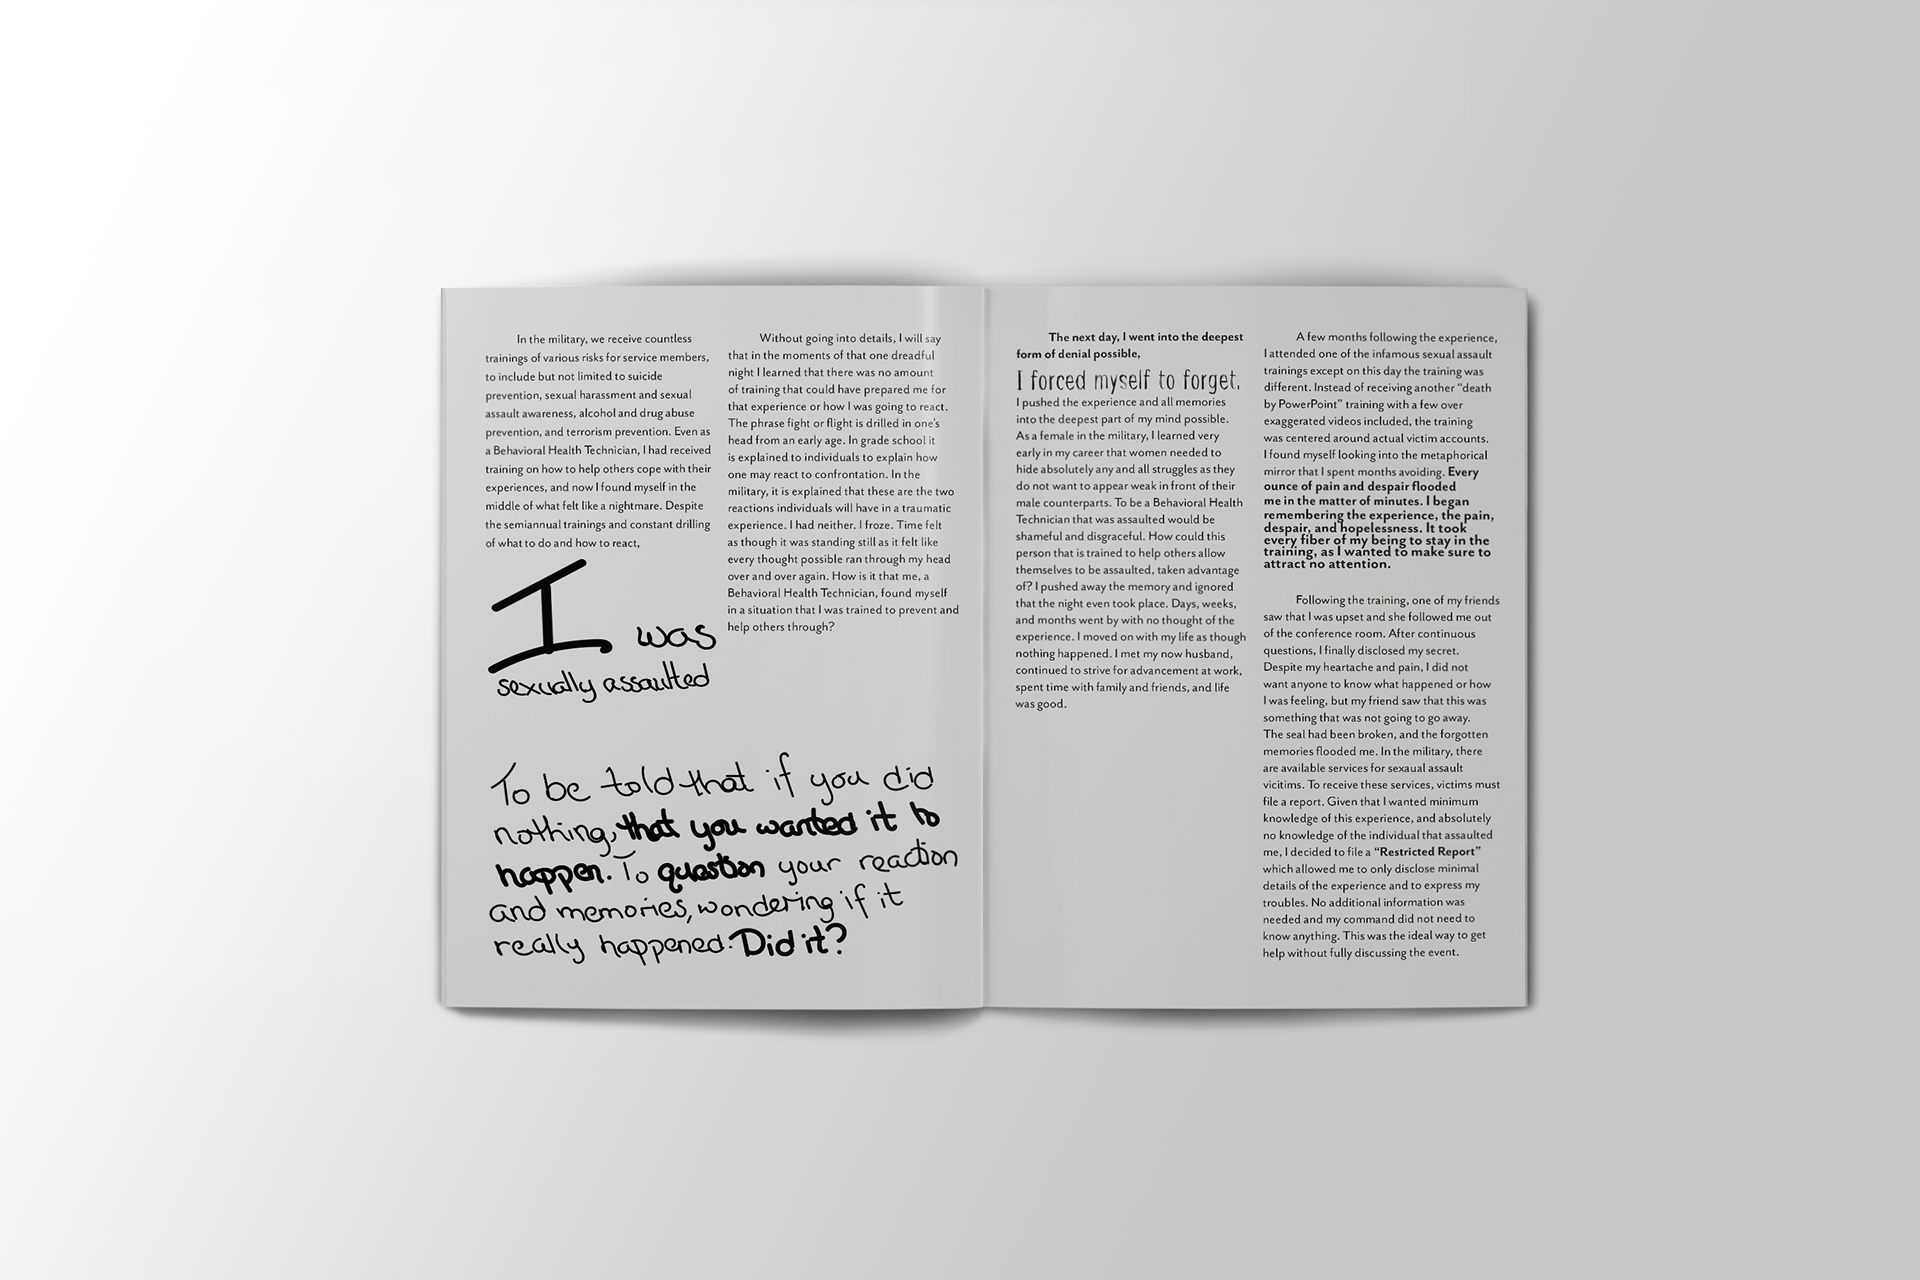 In the military, we receive countless
trainings of various risks for service members,
to include but not limited to suicide
prevention, sexual harassment and sexual
assault awareness, alcohol and drug abuse
prevention, and terrorism prevention. Even as
a Behavioral Health Technician, I had received
training on how to help others cope with their
experiences, and now I found myself in the
middle of what felt like a nightmare. Despite
the semiannual trainings and constant drilling
of what to do and how to react,
I was
sexually assaulted
Without going into details, I will say
that in the moments of that one dreadful
night I learned that there was no amount
of training that could have prepared me for
that experience or how I was going to react.
The phrase fight or flight is drilled in one's
head from an early age. In grade school it
is explained to individuals to explain how
one may react to confrontation. In the
military, it is explained that these are the two
reactions individuals will have in a traumatic
experience. I had neither. I froze. Time felt
as though it was standing still as it felt like
every thought possible ran through my head
over and over again. How is it that me, a
Behavioral Health Technician, found myself
in a situation that I was trained to prevent and
help others through?
To be told that if you did
nothing, that you wanted it to
happen. To question your reaction
and memories, wondering if it
really happened. Did it?
The next day, I went into the deepest
form of denial possible,
I forced myself to forget.
I pushed the experience and all memories
into the deepest part of my mind possible.
As a female in the military, I learned very
early in my career that women needed to
hide absolutely any and all struggles as they
do not want to appear weak in front of their
male counterparts. To be a Behavioral Health
Technician that was assaulted would be
shameful and disgraceful. How could this
person that is trained to help others allow
themselves to be assaulted, taken advantage
of? I pushed away the memory and ignored
that the night even took place. Days, weeks,
and months went by with no thought of the
experience. I moved on with my life as though
nothing happened. I met my now husband,
continued to strive for advancement at work,
spent time with family and friends, and life
was good.
A few months following the experience,
I attended one of the infamous sexual assault
trainings except on this day the training was
different. Instead of receiving another "death
by PowerPoint" training with a few over
exaggerated videos included, the training
was centered around actual victim accounts.
I found myself looking into the metaphorical
mirror that I spent months avoiding. Every
ounce of pain and despair flooded
me in the matter of minutes. I began
remembering the experience, the pain,
despair, and hopelessness. It took
every fiber of my being to stay in the
training, as I wanted to make sure to
attract no attention.
Following the training, one of my friends
saw that I was upset and she followed me out
of the conference room. After continuous
questions, I finally disclosed my secret.
Despite my heartache and pain, I did not
want anyone to know what happened or how
I was feeling, but my friend saw that this was
something that was not going to go away.
The seal had been broken, and the forgotten
memories flooded me. In the military, there
are available services for sexaual assault
vicitims. To receive these services, victims must
file a report. Given that I wanted minimum
knowledge of this experience, and absolutely
no knowledge of the individual that assaulted
me, I decided to file a "Restricted Report"
which allowed me to only disclose minimal
details of the experience and to express my
troubles. No additional information was
needed and my command did not need to
know anything. This was the ideal way to get
help without fully discussing the event.